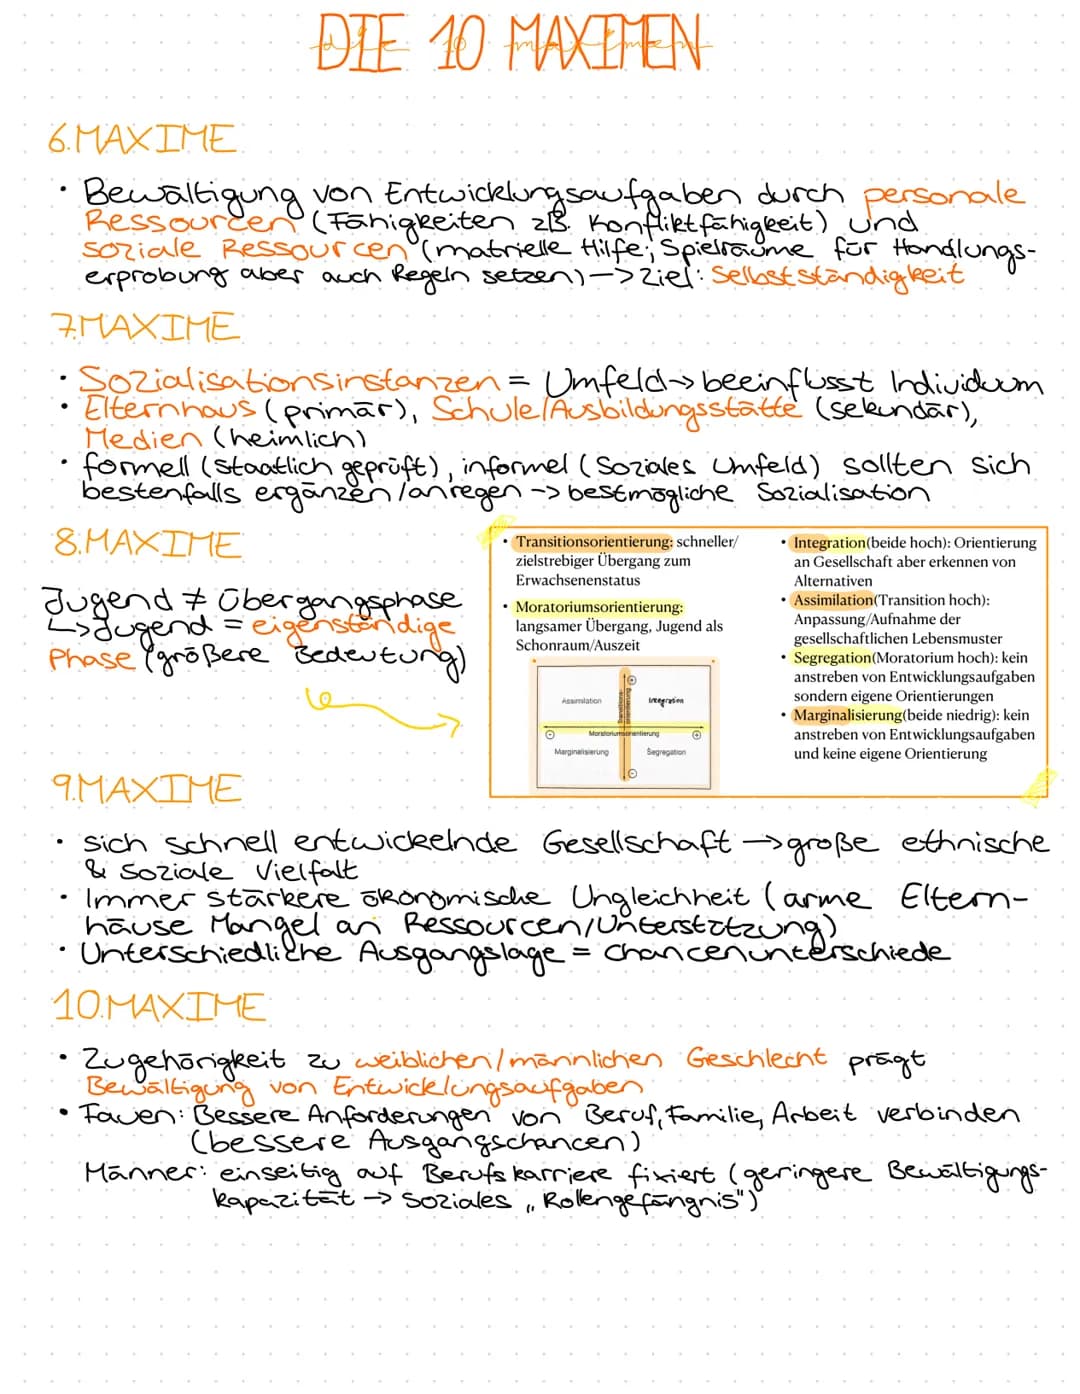 DIE 10 MAXIMEN
die 10 maximen
6.MAXIME
• Bewältigung von Entwicklungsaufgaben durch personale
Ressourcen (Fähigkeiten z.B. Konfliktfähigkeit) und
soziale Ressourcen (matrielle Hilfe; Spielräume für Handlungs-
erprobung aber auch Regeln setzen) -> Ziel: Selbstständigkeit
7.MAXIME
• Sozialisationsinstanzen = Umfeld -> beeinflusst Individuum
• Elternhaus (primär), Schule/Ausbildungsstätte (sekundär),
Medien (heimlich)
• formell (staatlich geprüft), informel (Soziales Umfeld) sollten sich
bestenfalls ergänzen/anregen -> bestmögliche Sozialisation
8.MAXIME
Jugend ≠ Übergangsphase
↳ Jugend = eigenständige
Phase (größere Bedeutung)
• Transitionsorientierung: schneller/
zielstrebiger Übergang zum
Erwachsenenstatus
• Moratoriumsorientierung:
langsamer Übergang, Jugend als
Schonraum/Auszeit
Assimilation
Integration
Transitions-
orientierung
Moratoriumsorientierung
Marginalisierung
Segregation
• Integration(beide hoch): Orientierung
an Gesellschaft aber erkennen von
Alternativen
• Assimilation(Transition hoch):
Anpassung/Aufnahme der
gesellschaftlichen Lebensmuster
• Segregation(Moratorium hoch): kein
anstreben von Entwicklungsaufgaben
sondern eigene Orientierungen
• Marginalisierung(beide niedrig): kein
anstreben von Entwicklungsaufgaben
und keine eigene Orientierung
9.MAXIME
• sich schnell entwickelnde Gesellschaft -> große ethnische
& Soziale Vielfalt
• Immer stärkere ökonomische Ungleichheit (arme Eltern-
häuse Mangel an Ressourcen/Unterstützung)
• Unterschiedliche Ausgangslage = Chancenunterschiede
10.MAXIME
• Zugehörigkeit zu weiblichen/männlichen Geschlecht prägt
Bewältigung von Entwicklungsaufgaben
• Fauen: Bessere Anforderungen von Beruf, Familie, Arbeit verbinden
(bessere Ausgangschancen)
Männer: einseitig auf Berufskarriere fixiert (geringere Bewältigungs-
kapazität -> Soziales „Rollengefängnis")